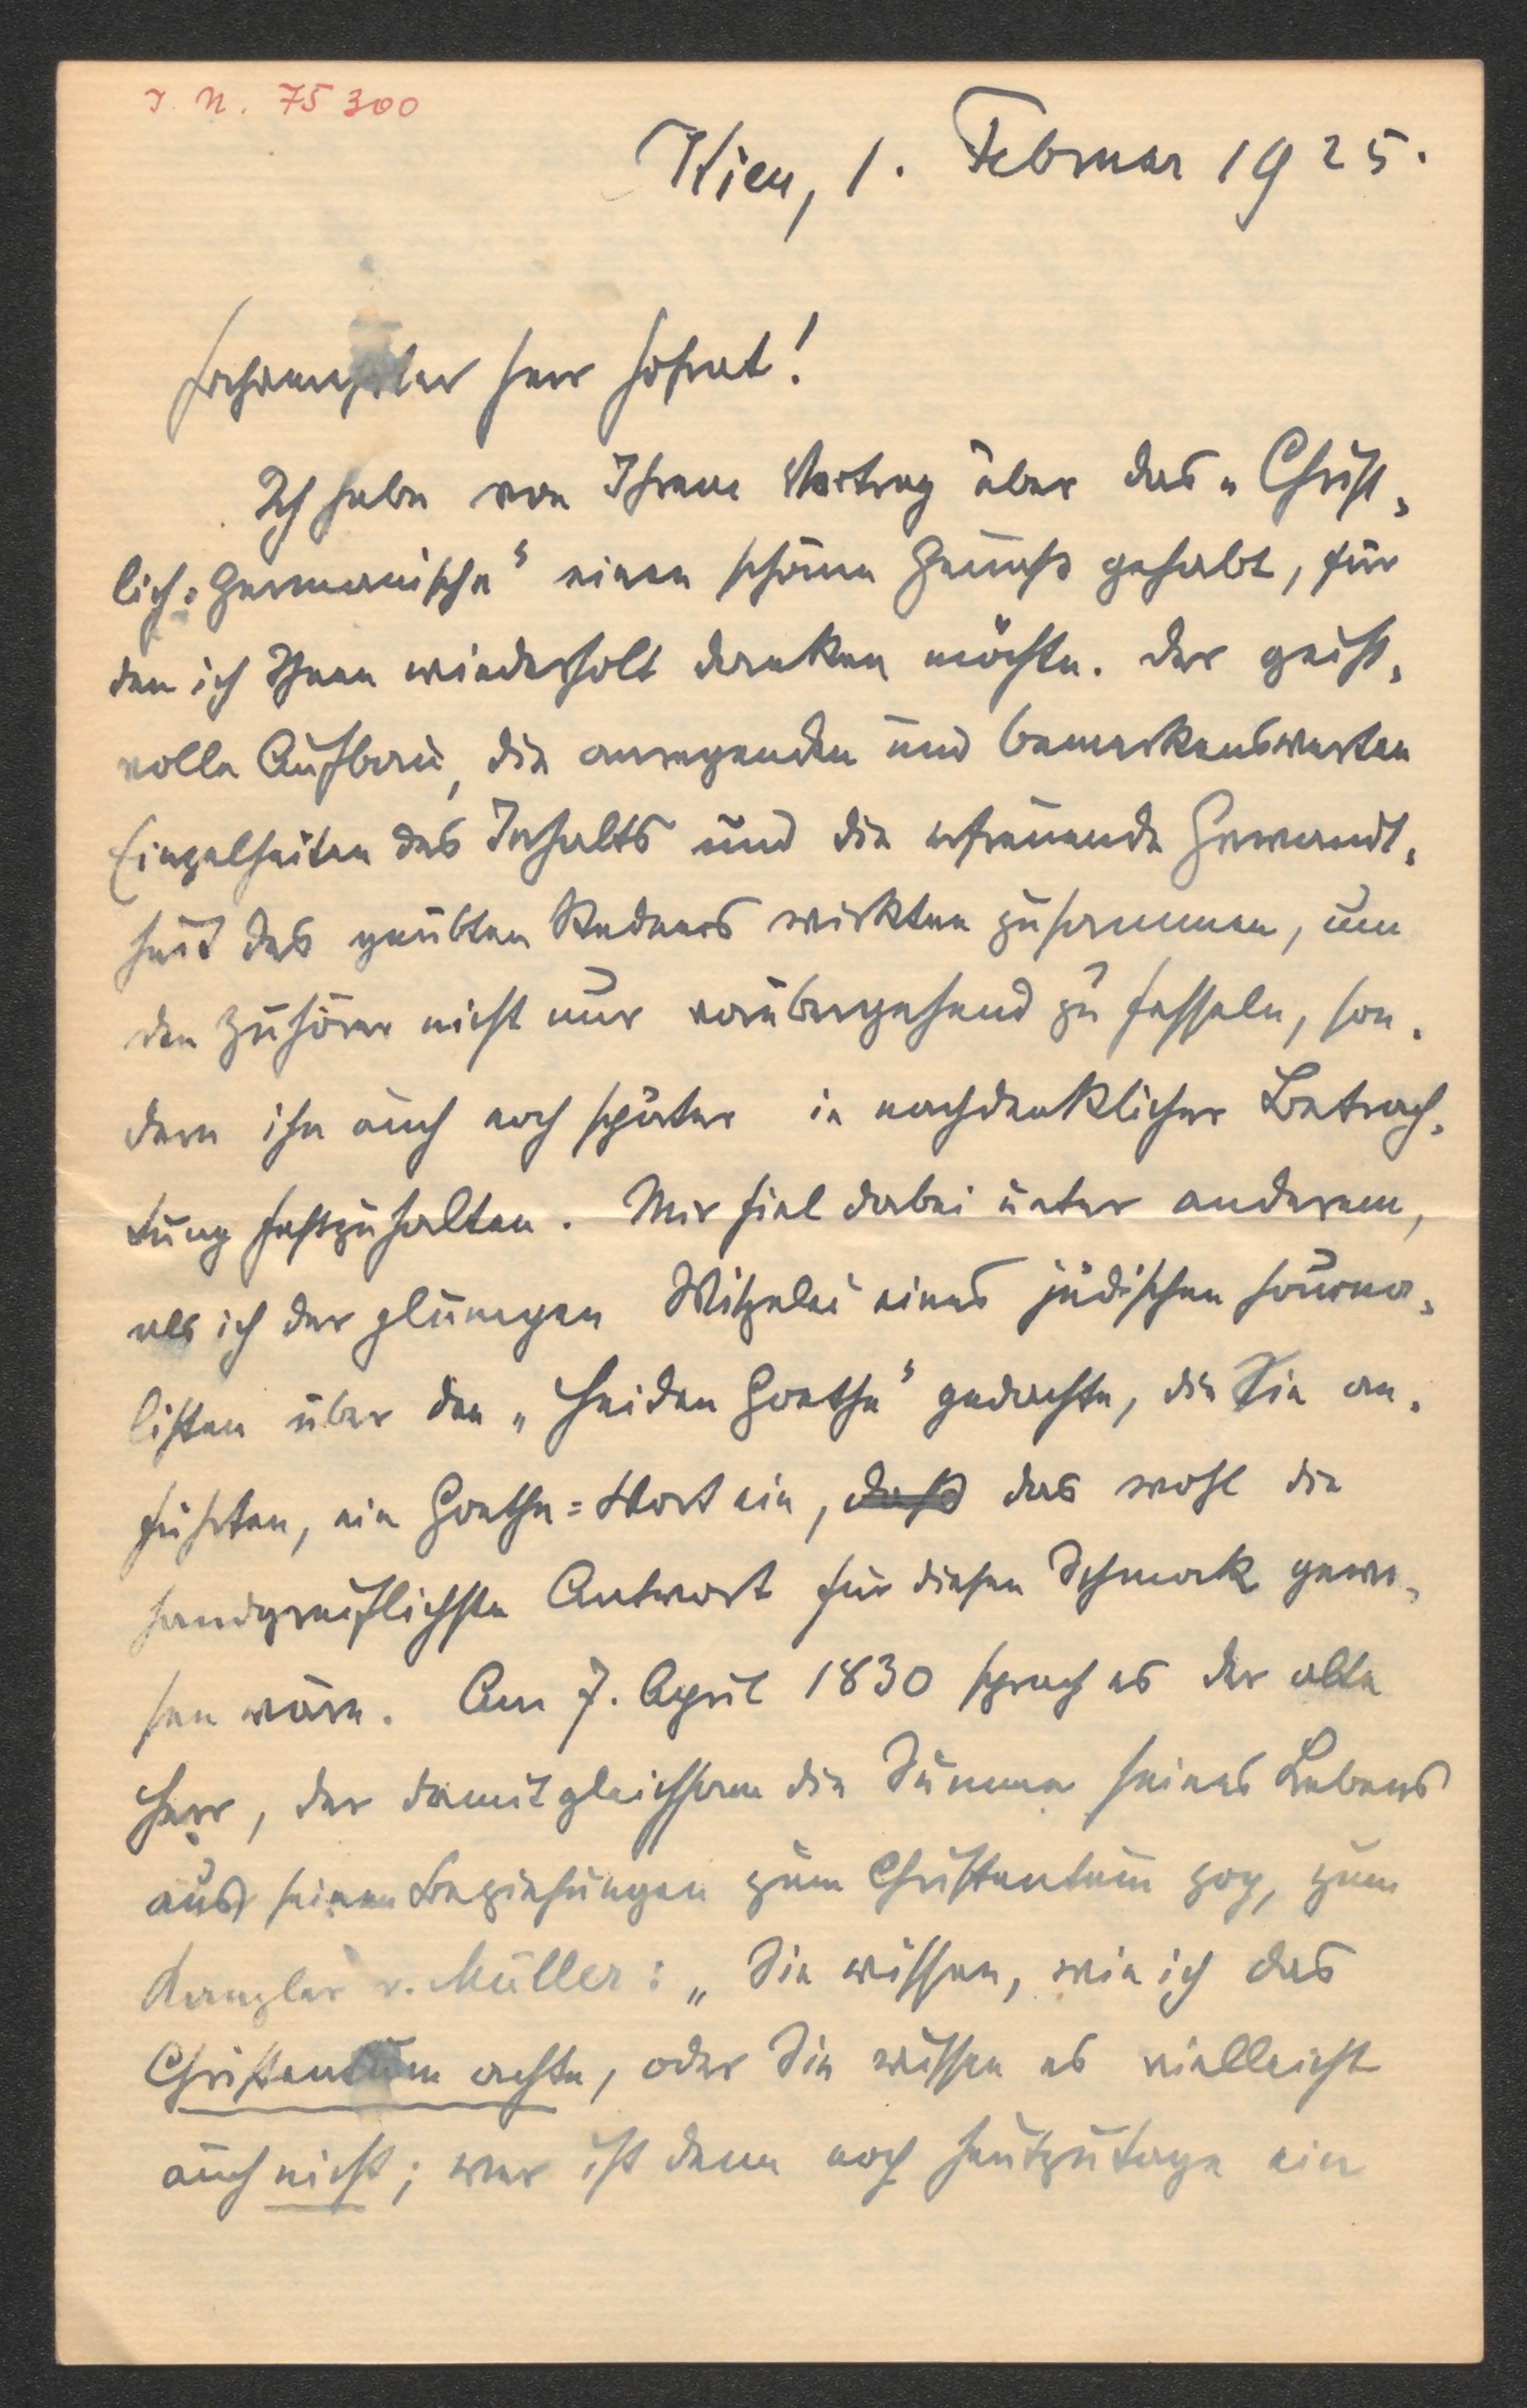 I. N. 75300
Wien, 1. Februar 1925.
Hochverehrter Herr Hofrat!
Ich habe von Ihrem Vortrag über das „Christ-
lich-Germanische“ einen schönen Genuß gehabt, für
den ich Ihnen wiederholt danken möchte. Der geist-
volle Aufbau, die anregenden und bemerkenswerten
Einzelheiten des Inhalts und die erfreuende Gewandt-
heit des geübten Redners wirkten zusammen, um
den Zuhörer nicht nur vorübergehend zu fesseln, son-
dern ihn auch noch später in nachdenklicher Betrach-
tung festzuhalten. Mir fiel dabei unter anderem,
als ich der Witzelei eines jüdischen Journa-
listen über den „Heiden Goethe“ gedachte, die Sie an-
führten, ein Goethe-Wort ein, daß das wohl die
handgreiflichste Antwort für diesen Schmock gewe-
sen wäre. Am 7. April 1830 sprach es der alte
Herr, der damit gleichsam die Summe seines Lebens
aus seinen Beziehungen zum Christentum zog, zum
Kanzler v. Müller: „Sie wissen, wie ich das
Christentum achte, oder Sie wissen es vielleicht
auch nicht; wer ist denn noch heutzutage ein